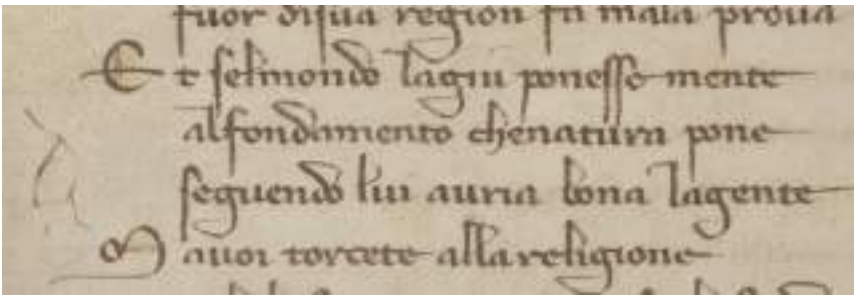 fuor disua region fa mala proua
Et selmondo lagiu ponesse mente
alfondamento chenatura pone
seguendo lui auria bona lagente
Mauoi torcete allareligione